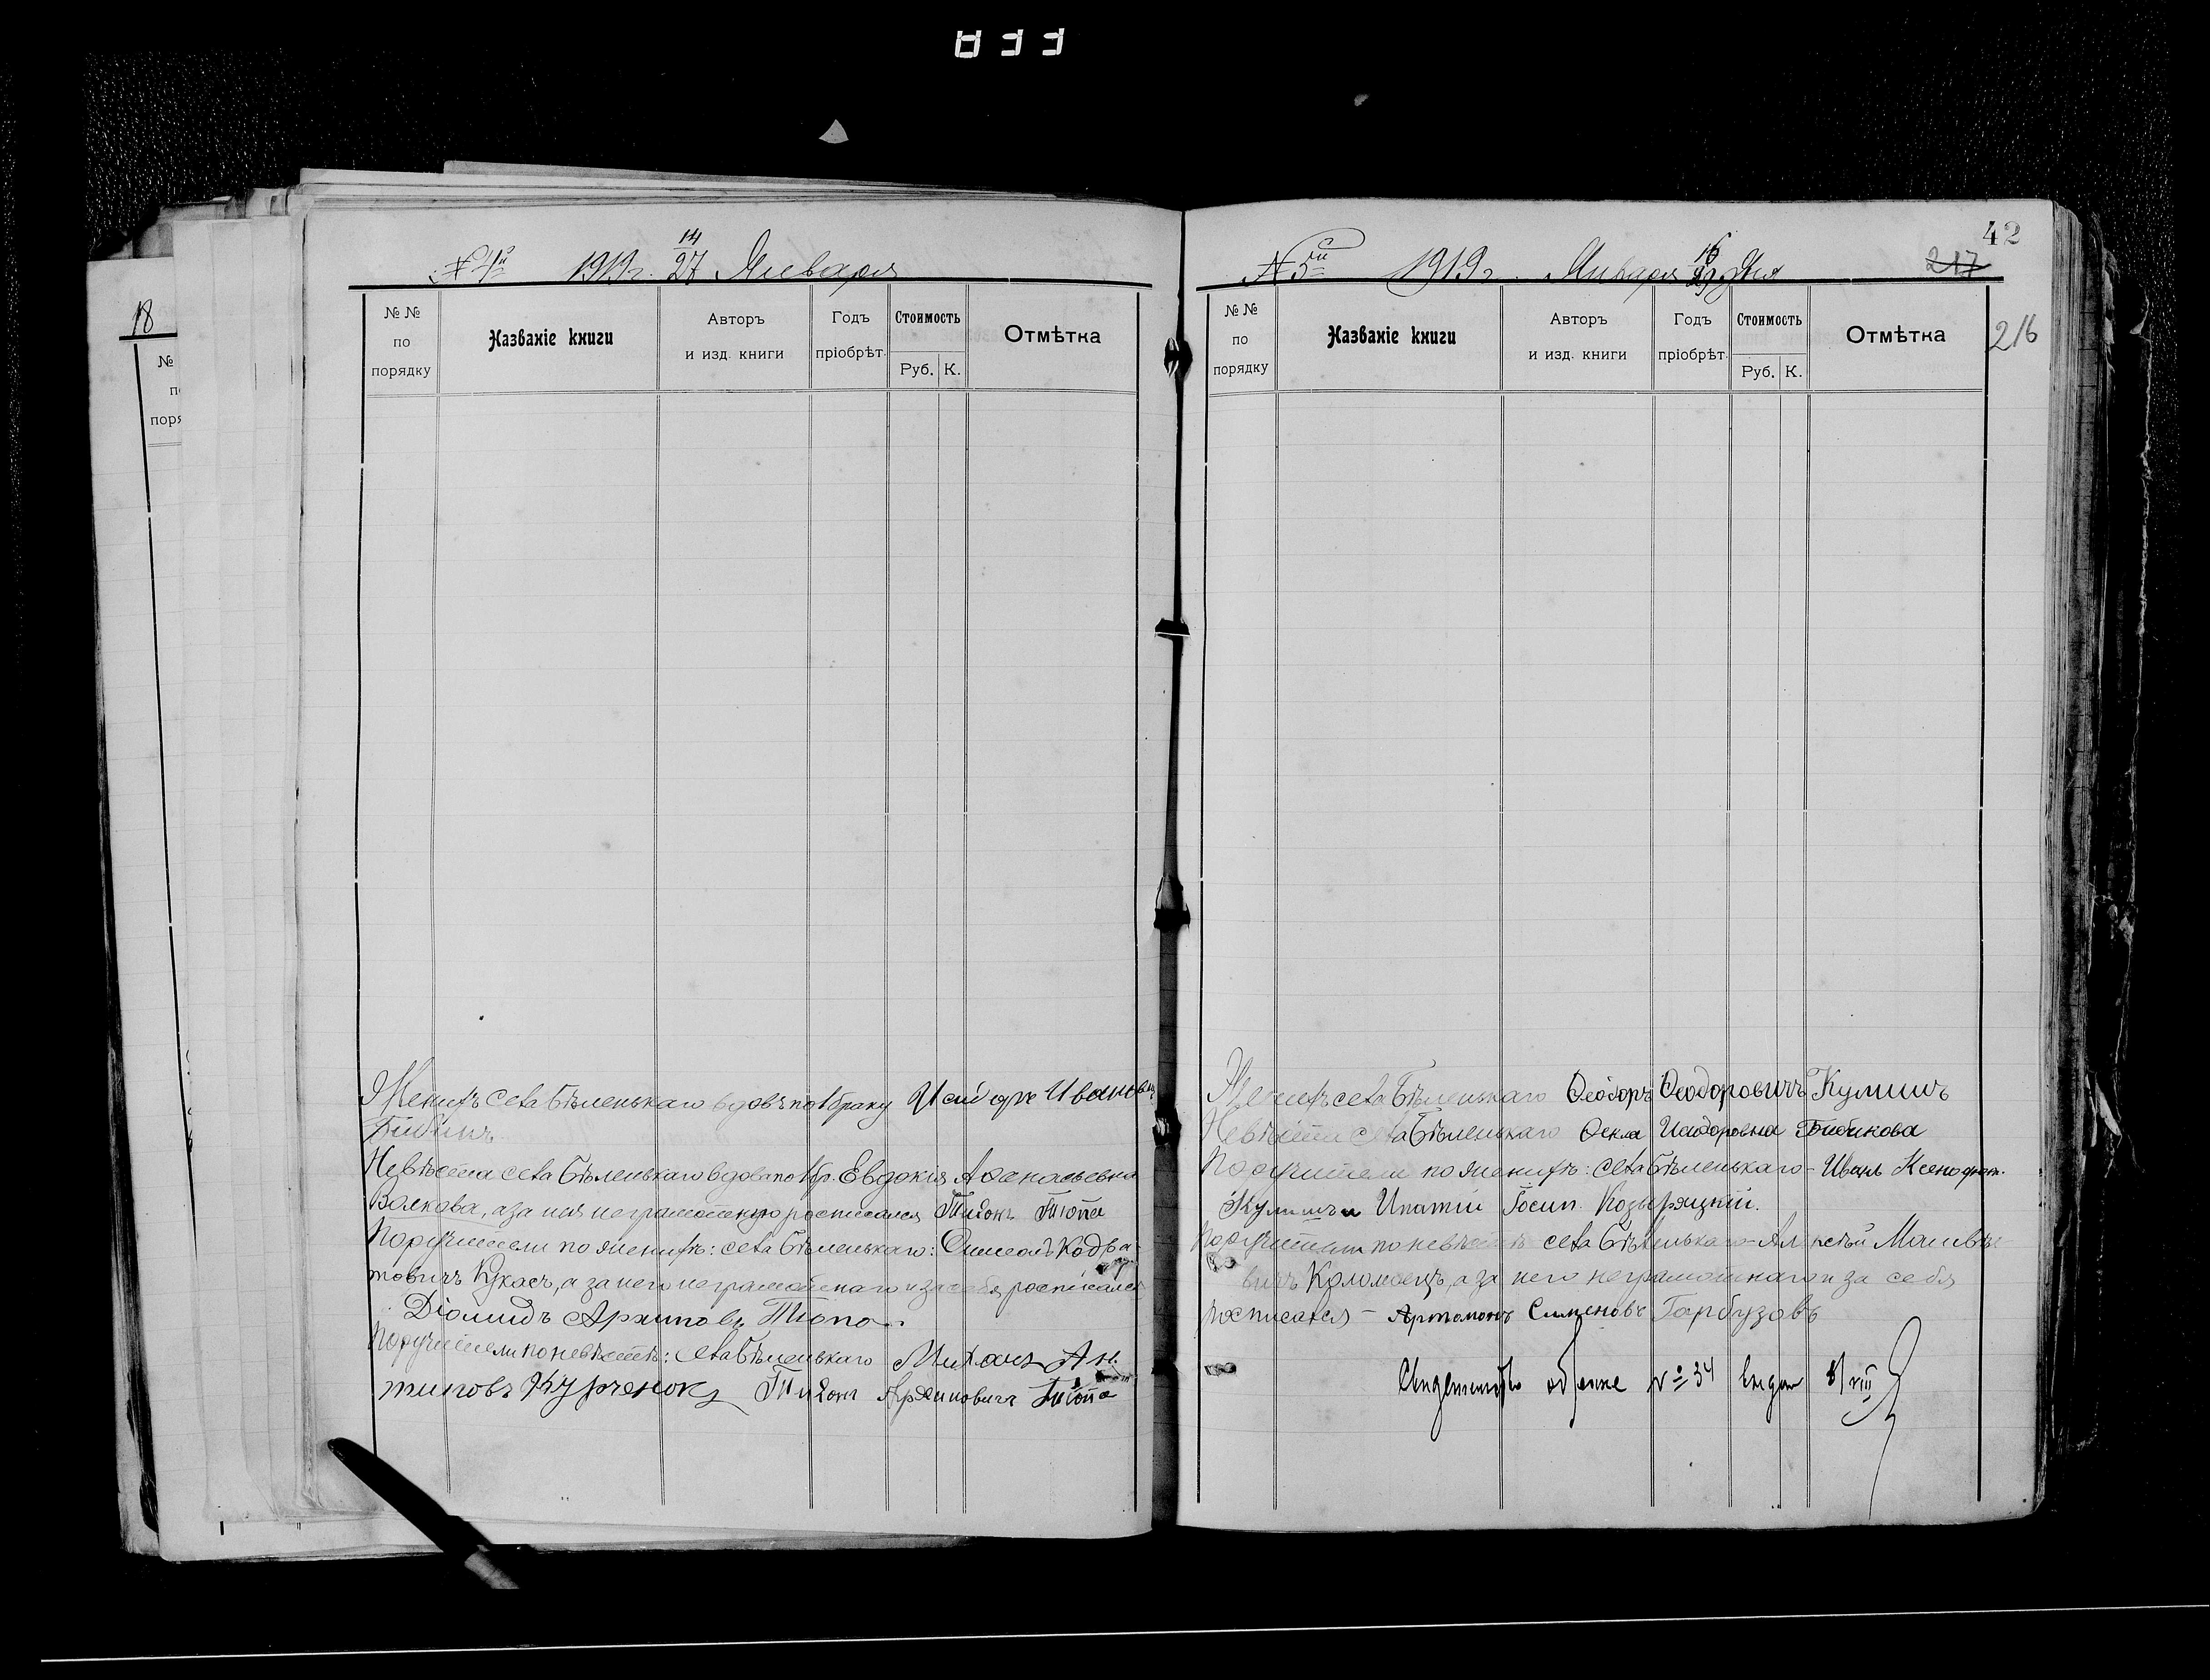 833
18
№
по
поря
№ 4й 1919 г. 14/27 Января
№ №
по
порядку
Названіе книги
Авторъ
и изд. книги
Годъ
пріобрѣт.
Стоимость
Руб. К.
Отмѣтка
Женихъ села Бѣленькаго вдовъ по 1 браку Исидоръ Ивановъ
Невѣста села Бѣленькаго вдова по 1 бр. Евдокія Афанасьевна
Волкова, а за нея неграмотную росписался Тихонъ Тюпа
Поручители по женихѣ: села Бѣленькаго: Симеонъ Кодра-
товичъ Кукасъ, а за него неграмотнаго и за себя росписался
Діомидъ Архиповъ Тюпа.
Поручители по невѣстѣ: села Бѣленькаго Михаилъ Ан-
типовъ Курченокъ Тихонъ Архиповичъ Тюпа
42
№ 5й 1919 г. Января 16/29 дня
217
216
№ №
по
порядку
Названіе книги
Авторъ
и изд. книги
Годъ
пріобрѣт.
Стоимость
Руб. К.
Отмѣтка
Женихъ села Бѣленькаго Ѳеодоръ Ѳеодоровичъ Кулишъ
Невѣста села Бѣленькаго Ѳекла Исидоровна Бибикова
Поручители по женихѣ: села Бѣленькаго - Иванъ Ксенофонт.
Кулишъ и Ипатій Іосип. Козыряцкій.
Поручители по невѣстѣ села Бѣленькаго - Алексѣй Матвѣе-
вичъ Коломоецъ, а за него неграмотнаго и за себя
росписался - Артомонъ Сименовъ Гарбузовъ
№ 34 8/VIII